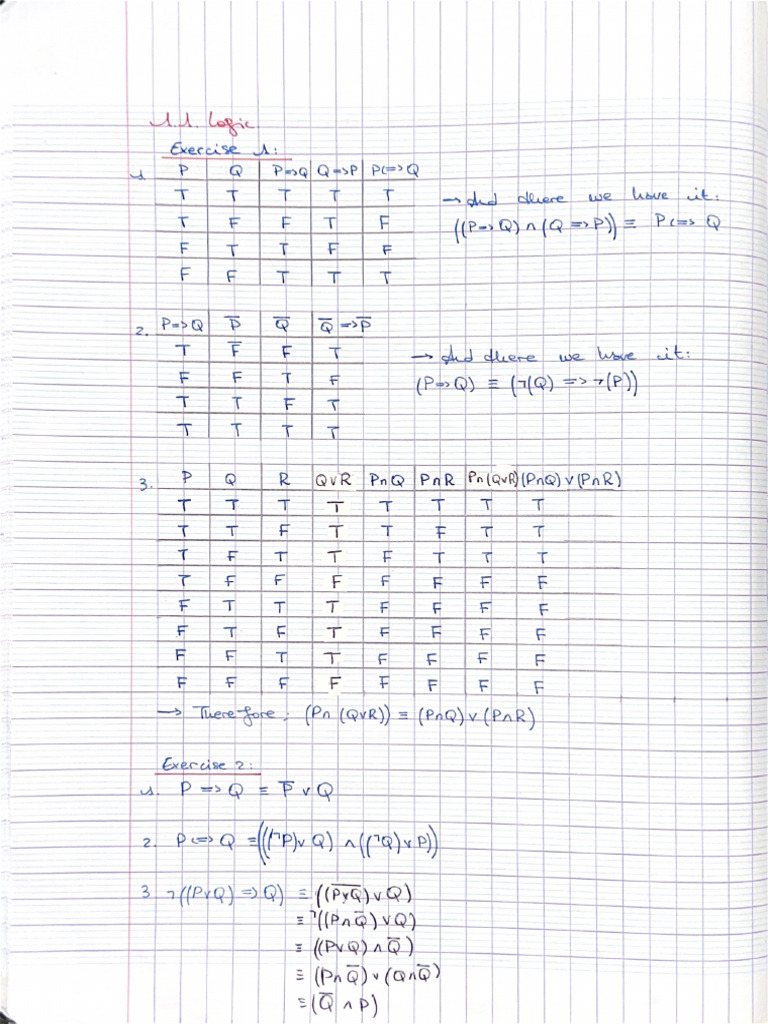 1.1. Logic
Exercise 1:
1. P Q P=>Q Q=>P P<=>Q
T T T T T
T F F T F
F T T F F
F F T T T
→ And there we have it:
((P=>Q) ∧ (Q=>P)) ≡ P<=>Q
2. P=>Q P̅ Q̅ Q̅=>P̅
T F F T
F F T F
T T F T
T T T T
→ And there we have it:
(P=>Q) ≡ (¬(Q) => ¬(P))
3. P Q R Q∨R P∧Q P∧R P∧(Q∨R) (P∧Q)∨(P∧R)
T T T T T T T T
T T F T T F T T
T F T T F T T T
T F F F F F F F
F T T T F F F F
F T F T F F F F
F F T T F F F F
F F F F F F F F
→ Therefore: (P∧(Q∨R)) ≡ (P∧Q)∨(P∧R)
Exercise 2:
1. P => Q ≡ P̅ ∨ Q
2. P<=>Q ≡ (((¬P)∨Q) ∧ ((¬Q)∨P))
3 ¬((P∨Q) => Q) ≡ ((P̅∨̅Q̅)∨Q)
≡ ¬((P∧Q̅)∨Q)
≡ ((P∨Q)∧Q̅)
≡ (P∧Q̅)∨(Q∧Q̅)
≡ (Q̅∧P)